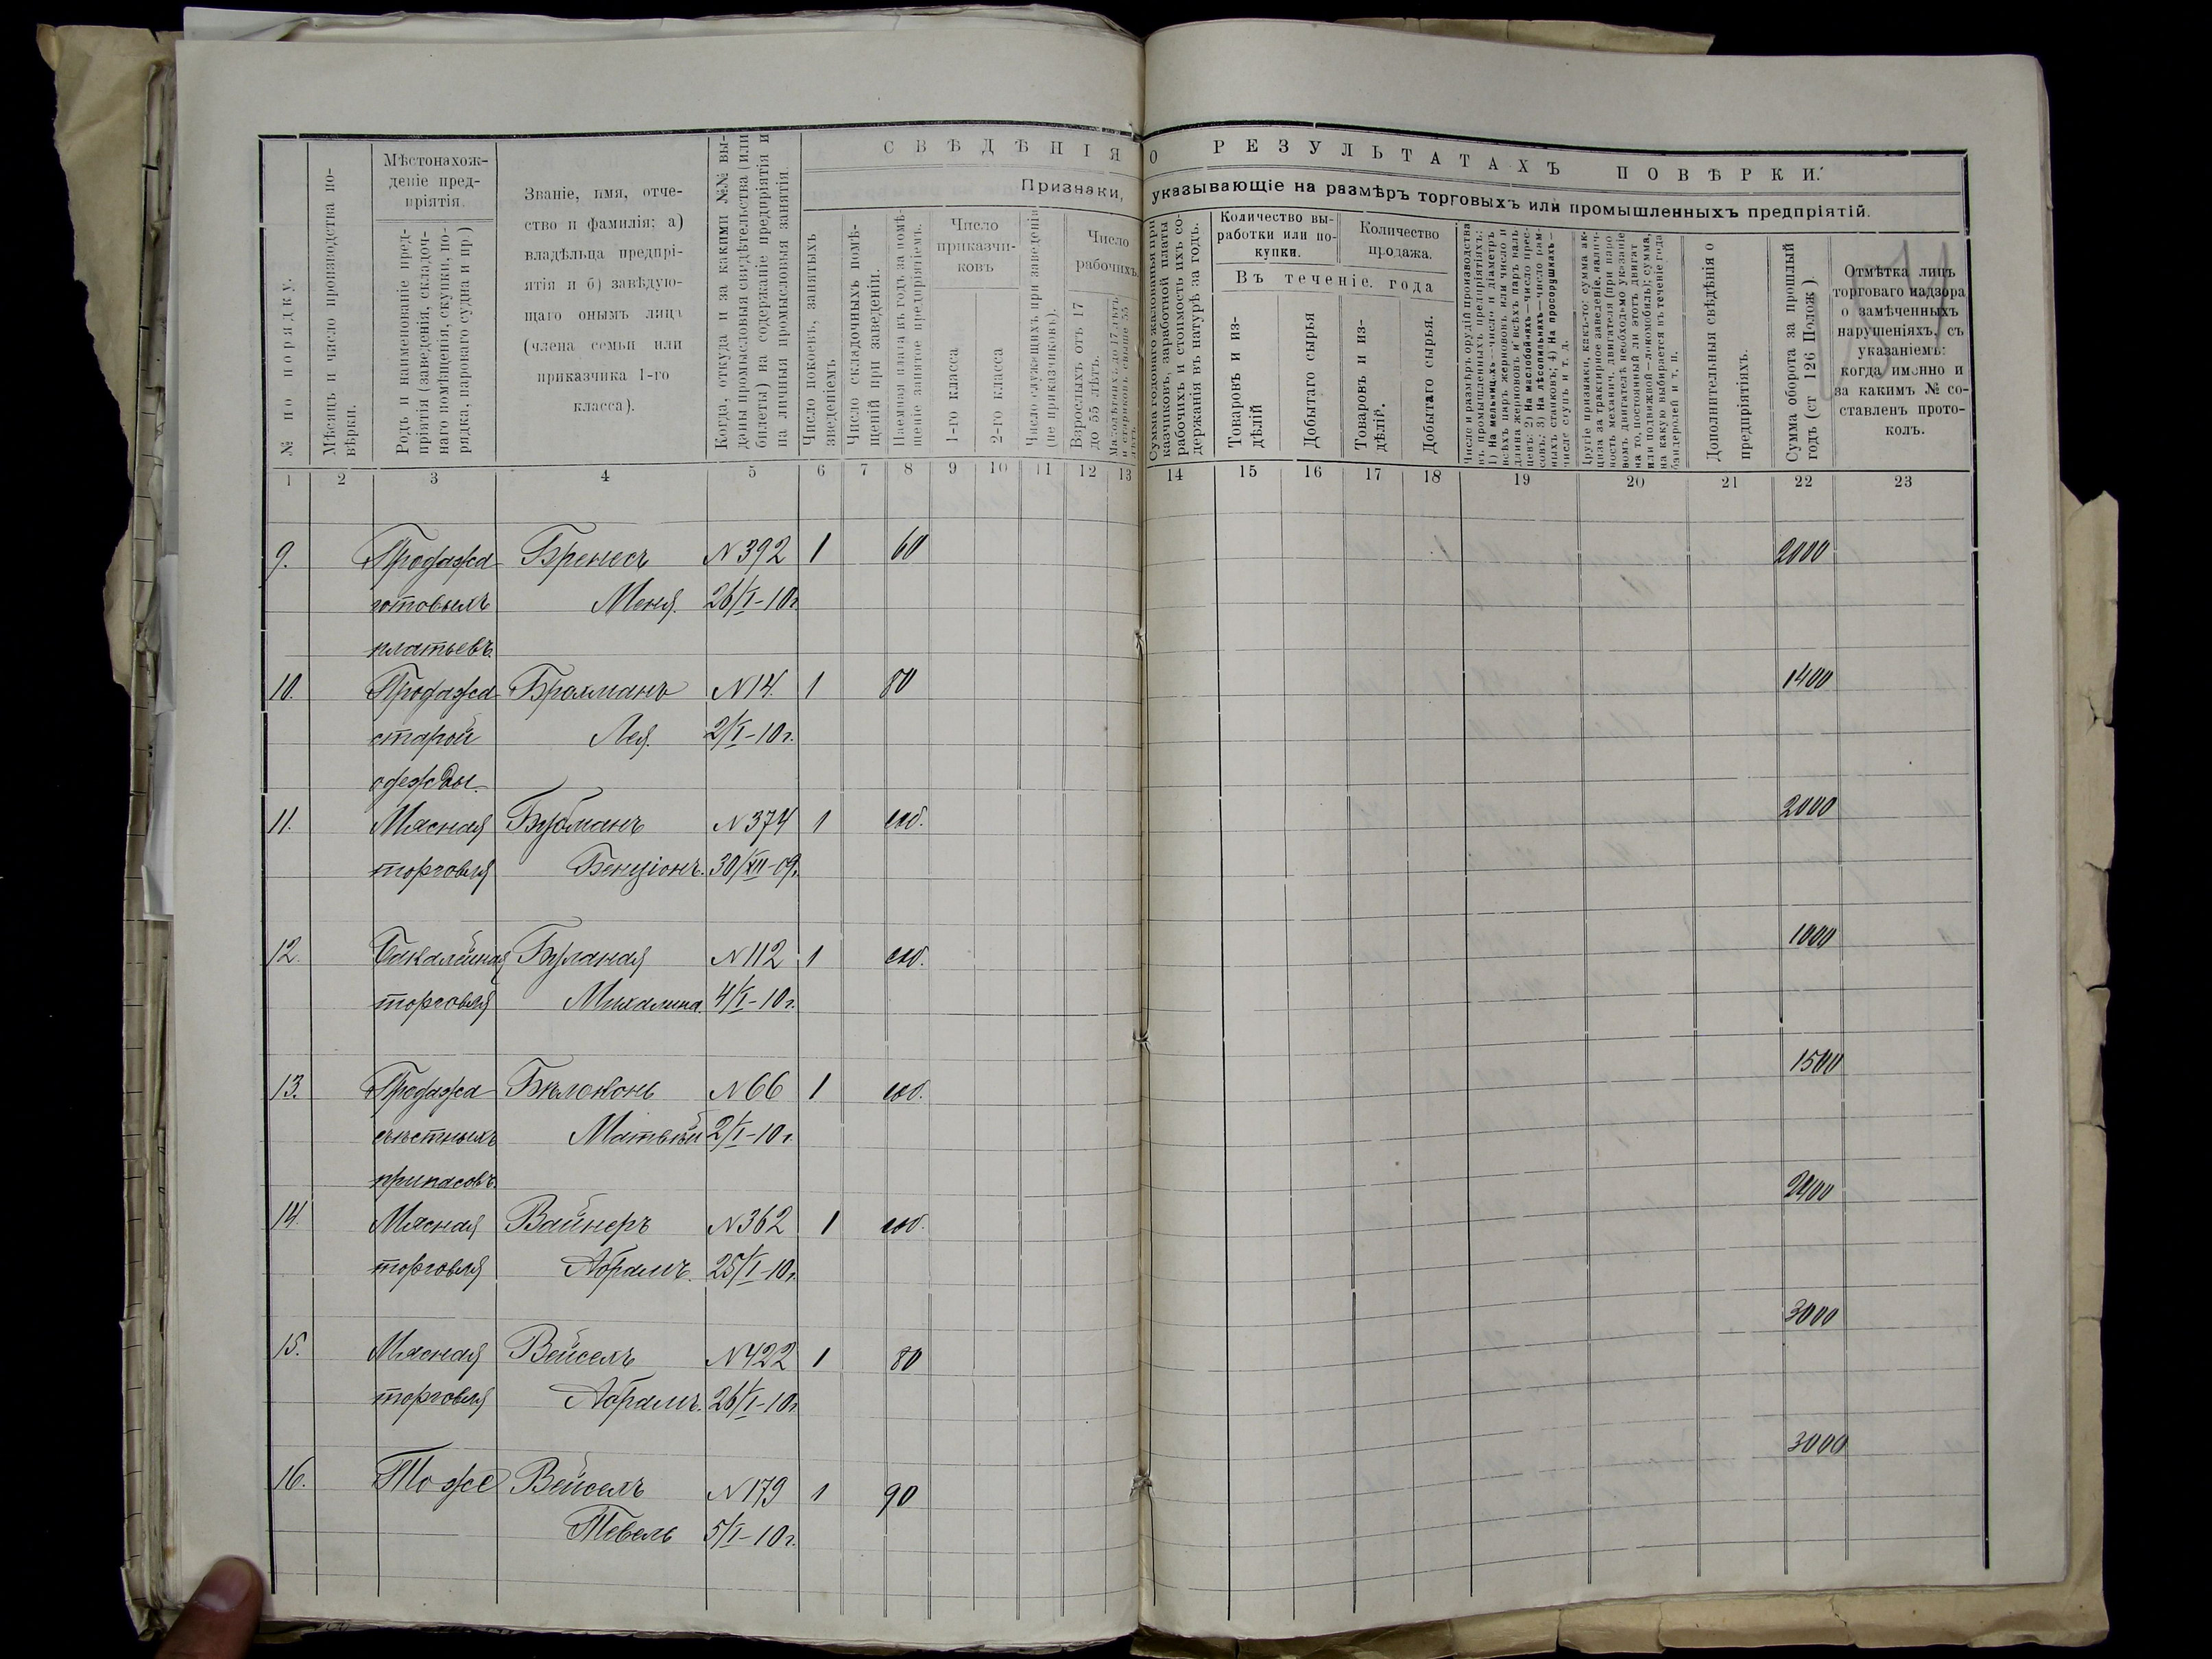 СВѢДѢНІЯ О РЕЗУЛЬТАТАХЪ ПОВѢРКИ.
Признаки, указывающіе на размѣръ торговыхъ или промышленныхъ предпріятій.
№ по порядку.
Мѣсяцъ и число производства по-
вѣрки.
Мѣстонахож-
деніе пред-
пріятія.
Родъ и наименованіе пред-
пріятія (заведенія, складоч-
наго помѣщенія, скупки, по-
рядка, пароваго судна и пр.)
Званіе, имя, отче-
ство и фамилія: а)
владѣльца предпрі-
ятія и б) завѣдую-
щаго онымъ лица
(члена семьи или
приказчика 1-го
класса).
Когда, откуда и за какими №№ вы-
даны промысловыя свидѣтельства (или
билеты) на содержаніе предпріятія и
на личныя промысловыя занятія.
Число покоевъ, занятыхъ
зведеніемъ
Число складочныхъ помѣ-
щеній при заведеніи.
Наемная плата въ годъ за помѣ-
щеніе занятое предпріятіемъ.
Число
приказчи-
ковъ
1-го класса
2-го класса
Число служащихъ при заведеніи
(не приказчиковъ).
Число
рабочихъ.
Взрослыхъ отъ 17
до 55 лѣтъ.
Малолѣтнихъ до 17 лѣтъ
и стариковъ свыше 55
лѣтъ.
Сумма годоваго жалованья при-
казчиковъ, заработной платы
рабочихъ и стоимость ихъ со-
держанія въ натурѣ за годъ.
Количество вы-
работки или по-
купки.
Количество
продажа.
Въ теченіе года
Товаровъ и из-
дѣлій
Добытаго сырья
Товаровъ и из-
дѣлій.
Добытаго сырья.
Число и размѣръ орудій производства
въ промышленныхъ предпріятіяхъ:
1) На мельницахъ—число и діаметръ
всѣхъ паръ жернововъ или число и
длина жернововъ и всѣхъ паръ валь-
цевъ; 2) На маслобойняхъ—число прес-
совъ; 3) На лѣсопильняхъ—число рам-
ныхъ станковъ; 4) На просорушкахъ—
число ступъ и т. д.
Другіе признаки, какъ-то: сумма ак-
циза за трактирное заведеніе, налич-
ность механич. двигателя (при паро-
вомъ двигателѣ необходимо указаніе
на то, постоянный ли этотъ двигат
или подвижной—локомобиль); сумма,
на какую выбирается въ теченіе года
бандеролей и т. п.
Дополнительныя свѣдѣнія о
предпріятіяхъ.
Сумма оборота за прошлый
годъ (ст 126 Полож ).
Отмѣтка лицъ
торговаго надзора
о замѣченныхъ
нарушеніяхъ, съ
указаніемъ:
когда именно и
за какимъ № со-
ставленъ прото-
колъ.
1 2 3 4 5 6 7 8 9 10 11 12 13 14 15 16 17 18 19 20 21 22 23
9. Продажа Бренесъ N 392 1 60 2000
готовыхъ Меня. 26/I-10г
платьевъ.
10. Продажа Брахманъ N 14. 1 80 1400
старой Лея. 2/I-10г.
одежды.
11. Мясная Бубманъ N 374 1 соб. 2000
торговля Бенціонъ. 30/XII-09г.
12. Бакалейная Буланая N 112 1 соб. 1000
торговля Михалина. 4/I-10г.
13. Продажа Бѣлоконь N 66 1 соб. 1500
съѣстныхъ Матвѣй 2/I-10г.
припасовъ.
14. Мясная Вайнеръ N 362 1 соб. 2400
торговля Абрамъ. 25/I-10г.
15. Мясная Вейсель N 422 1 80 3000
торговля Абрамъ. 26/I-10г.
16. Тоже Вейсель N 179 1 90 3000
Тевель 5/I-10г.